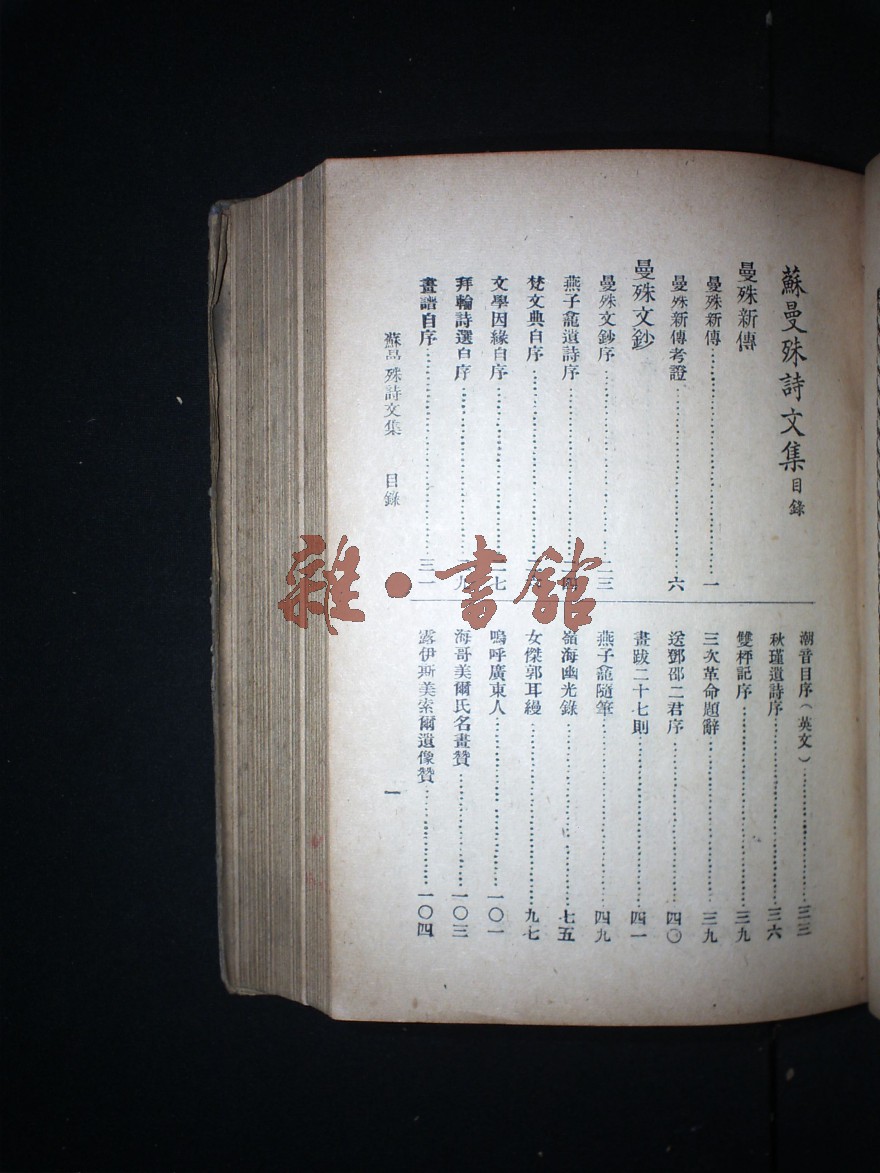 蘇曼殊詩文集目錄
曼殊新傳
曼殊新傳…………一
曼殊新傳考證…………六
曼殊文鈔
曼殊文鈔序…………二三
燕子龕遺詩序…………
梵文典自序…………
文學因緣自序…………二七
拜輪詩選自序…………九
畫譜自序…………三一
潮音自序(英文)…………三三
秋瑾遺詩序…………三六
雙枰記序…………三九
三次革命題辭…………三九
送鄧邵二君序…………四〇
畫跋二十七則…………四一
燕子龕隨筆…………四九
嶺海幽光錄…………七五
女傑郭耳縵…………九七
嗚呼廣東人…………一〇一
海哥美爾氏名畫贊…………一〇三
露伊斯美索爾遺像贊…………一〇四
蘇曼殊詩文集 目錄
一
雜·書館